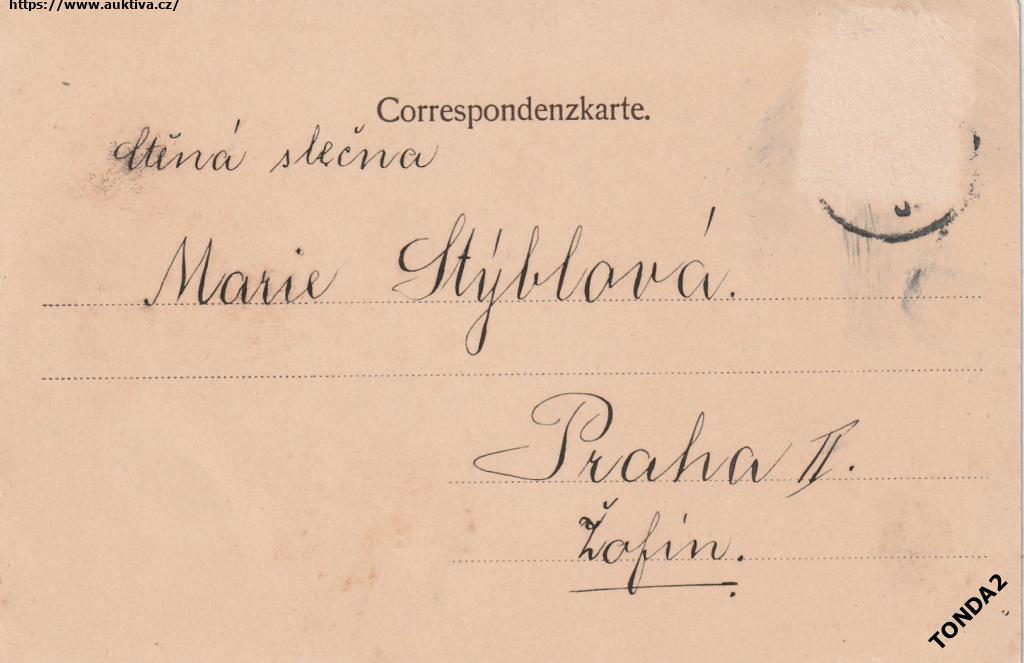 https://www.auktiva.cz/
Correspondenzkarte.
Ctěná slečna
Marie Stýblová.
Praha II.
Žofín.
TONDA2